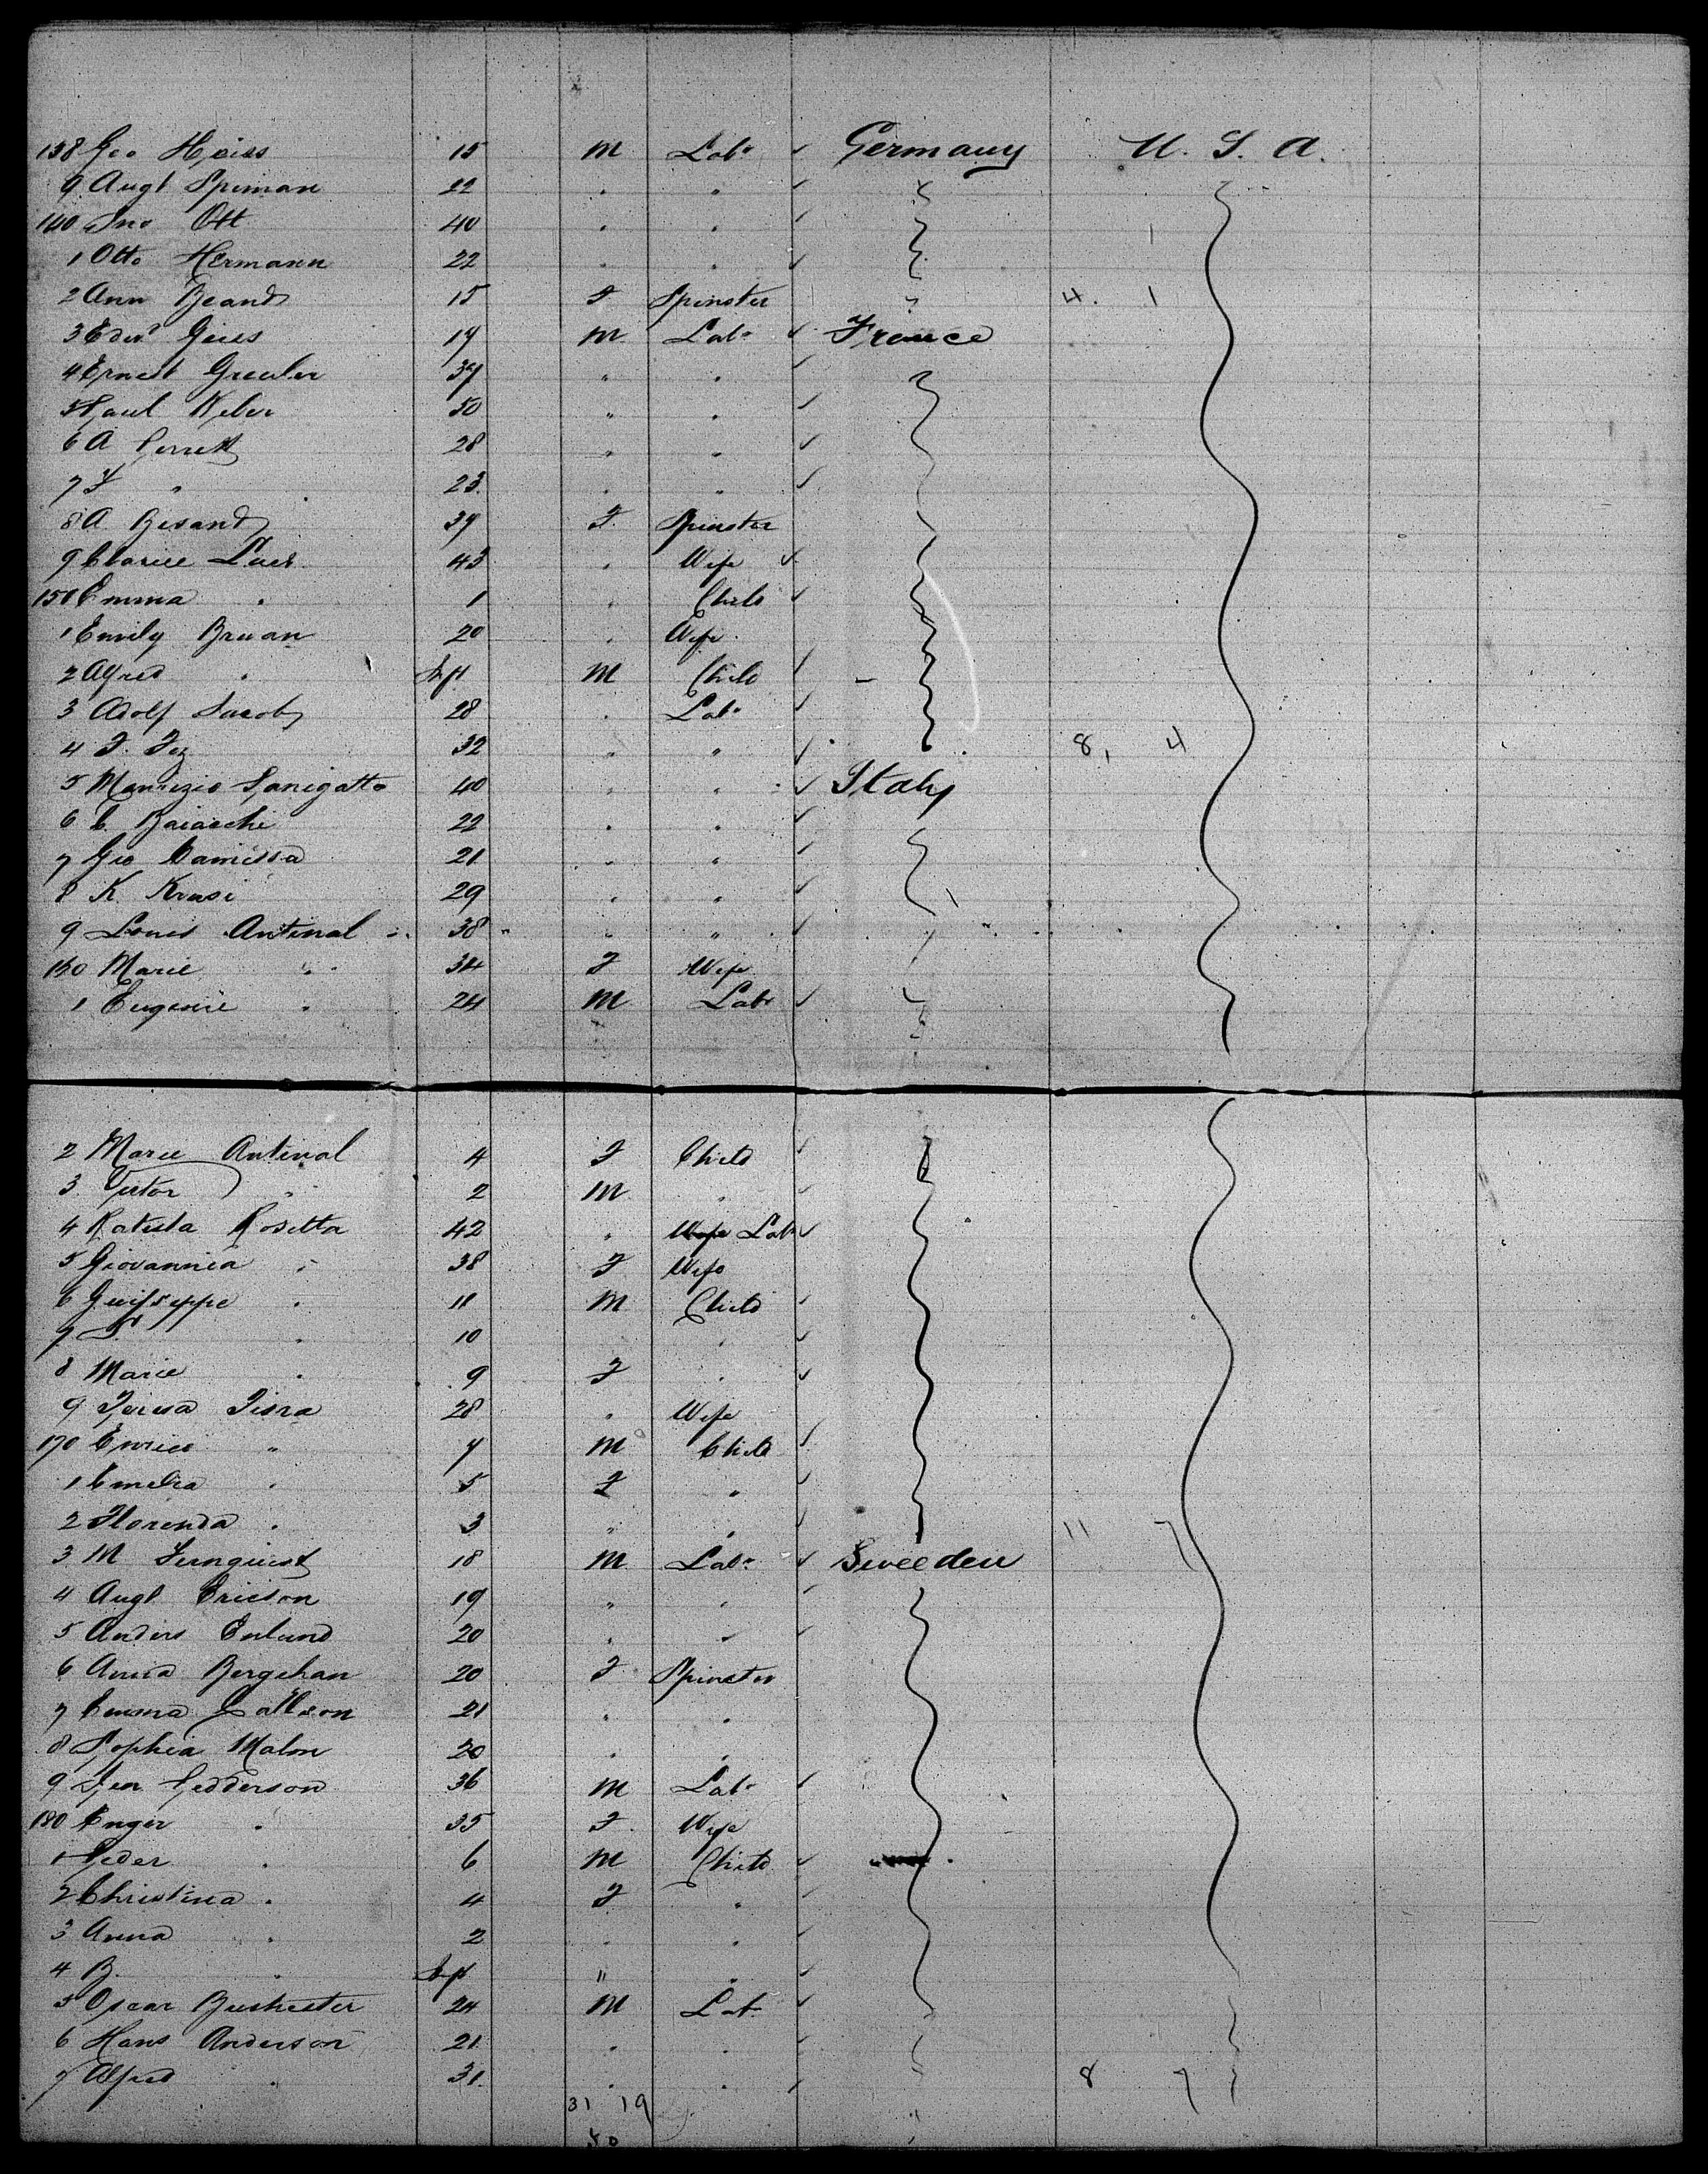 138 Geo Heiss 15 M Labr Germany U. S. A.
9 Augt Spiman 22 " "
140 Jno Ott 40 " "
1 Otto Hermann 22 " "
2 Ann Beand 15 F Spinster 4. 1
3 Edwd Geiss 19 M Labr France
4 Ernest Greuler 37 " "
5 Paul Weber 50 " "
6 A Perrett 28 " "
7 F " 23 " "
8 A. Besand 39 F. Spinster
9 Clarice Luet 43 " Wife
150 Emma " 1 " Child
1 Emily Bruan 20 " Wife
2 Alfred " Inft M Child
3 Adolf Jacob 28 " Labr
4 F. Fez 32 " " 8, 4
5 Maurizio Panigatto 40 " " Italy
6 C. Baiacchi 22 " "
7 Geo Camissa 21 " "
8 K. Krasi 29 " "
9 Louis Antinal 38 " "
160 Marie " 34 F Wife
1 Eugenie " 24 M Labr
2 Marie Antinal 4 F Child
3 Victor " 2 M "
4 Batista Rosetta 42 " Wife Labr
5 Giovannia " 38 F Wife
6 Guisseppe " 11 M Child
7 " 10 "
8 Marie " 9 F "
9 Teresa Tisra 28 " Wife
170 Enrico " 7 M Child
1 Emelia " 5 F "
2 Florenda " 3 " " 11 7
3 M Fernquist 18 M Labr Sweeden
4 Augt Ericson 19 " "
5 Anders Enlund 20 " "
6 Anna Bergehan 20 F Spinster
7 Emma Gallson 21 " "
8 Sophia Malm 20 " "
9 Jen Pedderson 36 M Labr
180 Enger " 35 F. Wife
1 Peder " 6 M Child
2 Christina " 4 F "
3 Anna " 2 " "
4 B. " Inft " "
5 Oscar Bushester 24 M Lab.
6 Hans Anderson 21 " "
7 Alfred " 31 " " 8 7
31 19
50